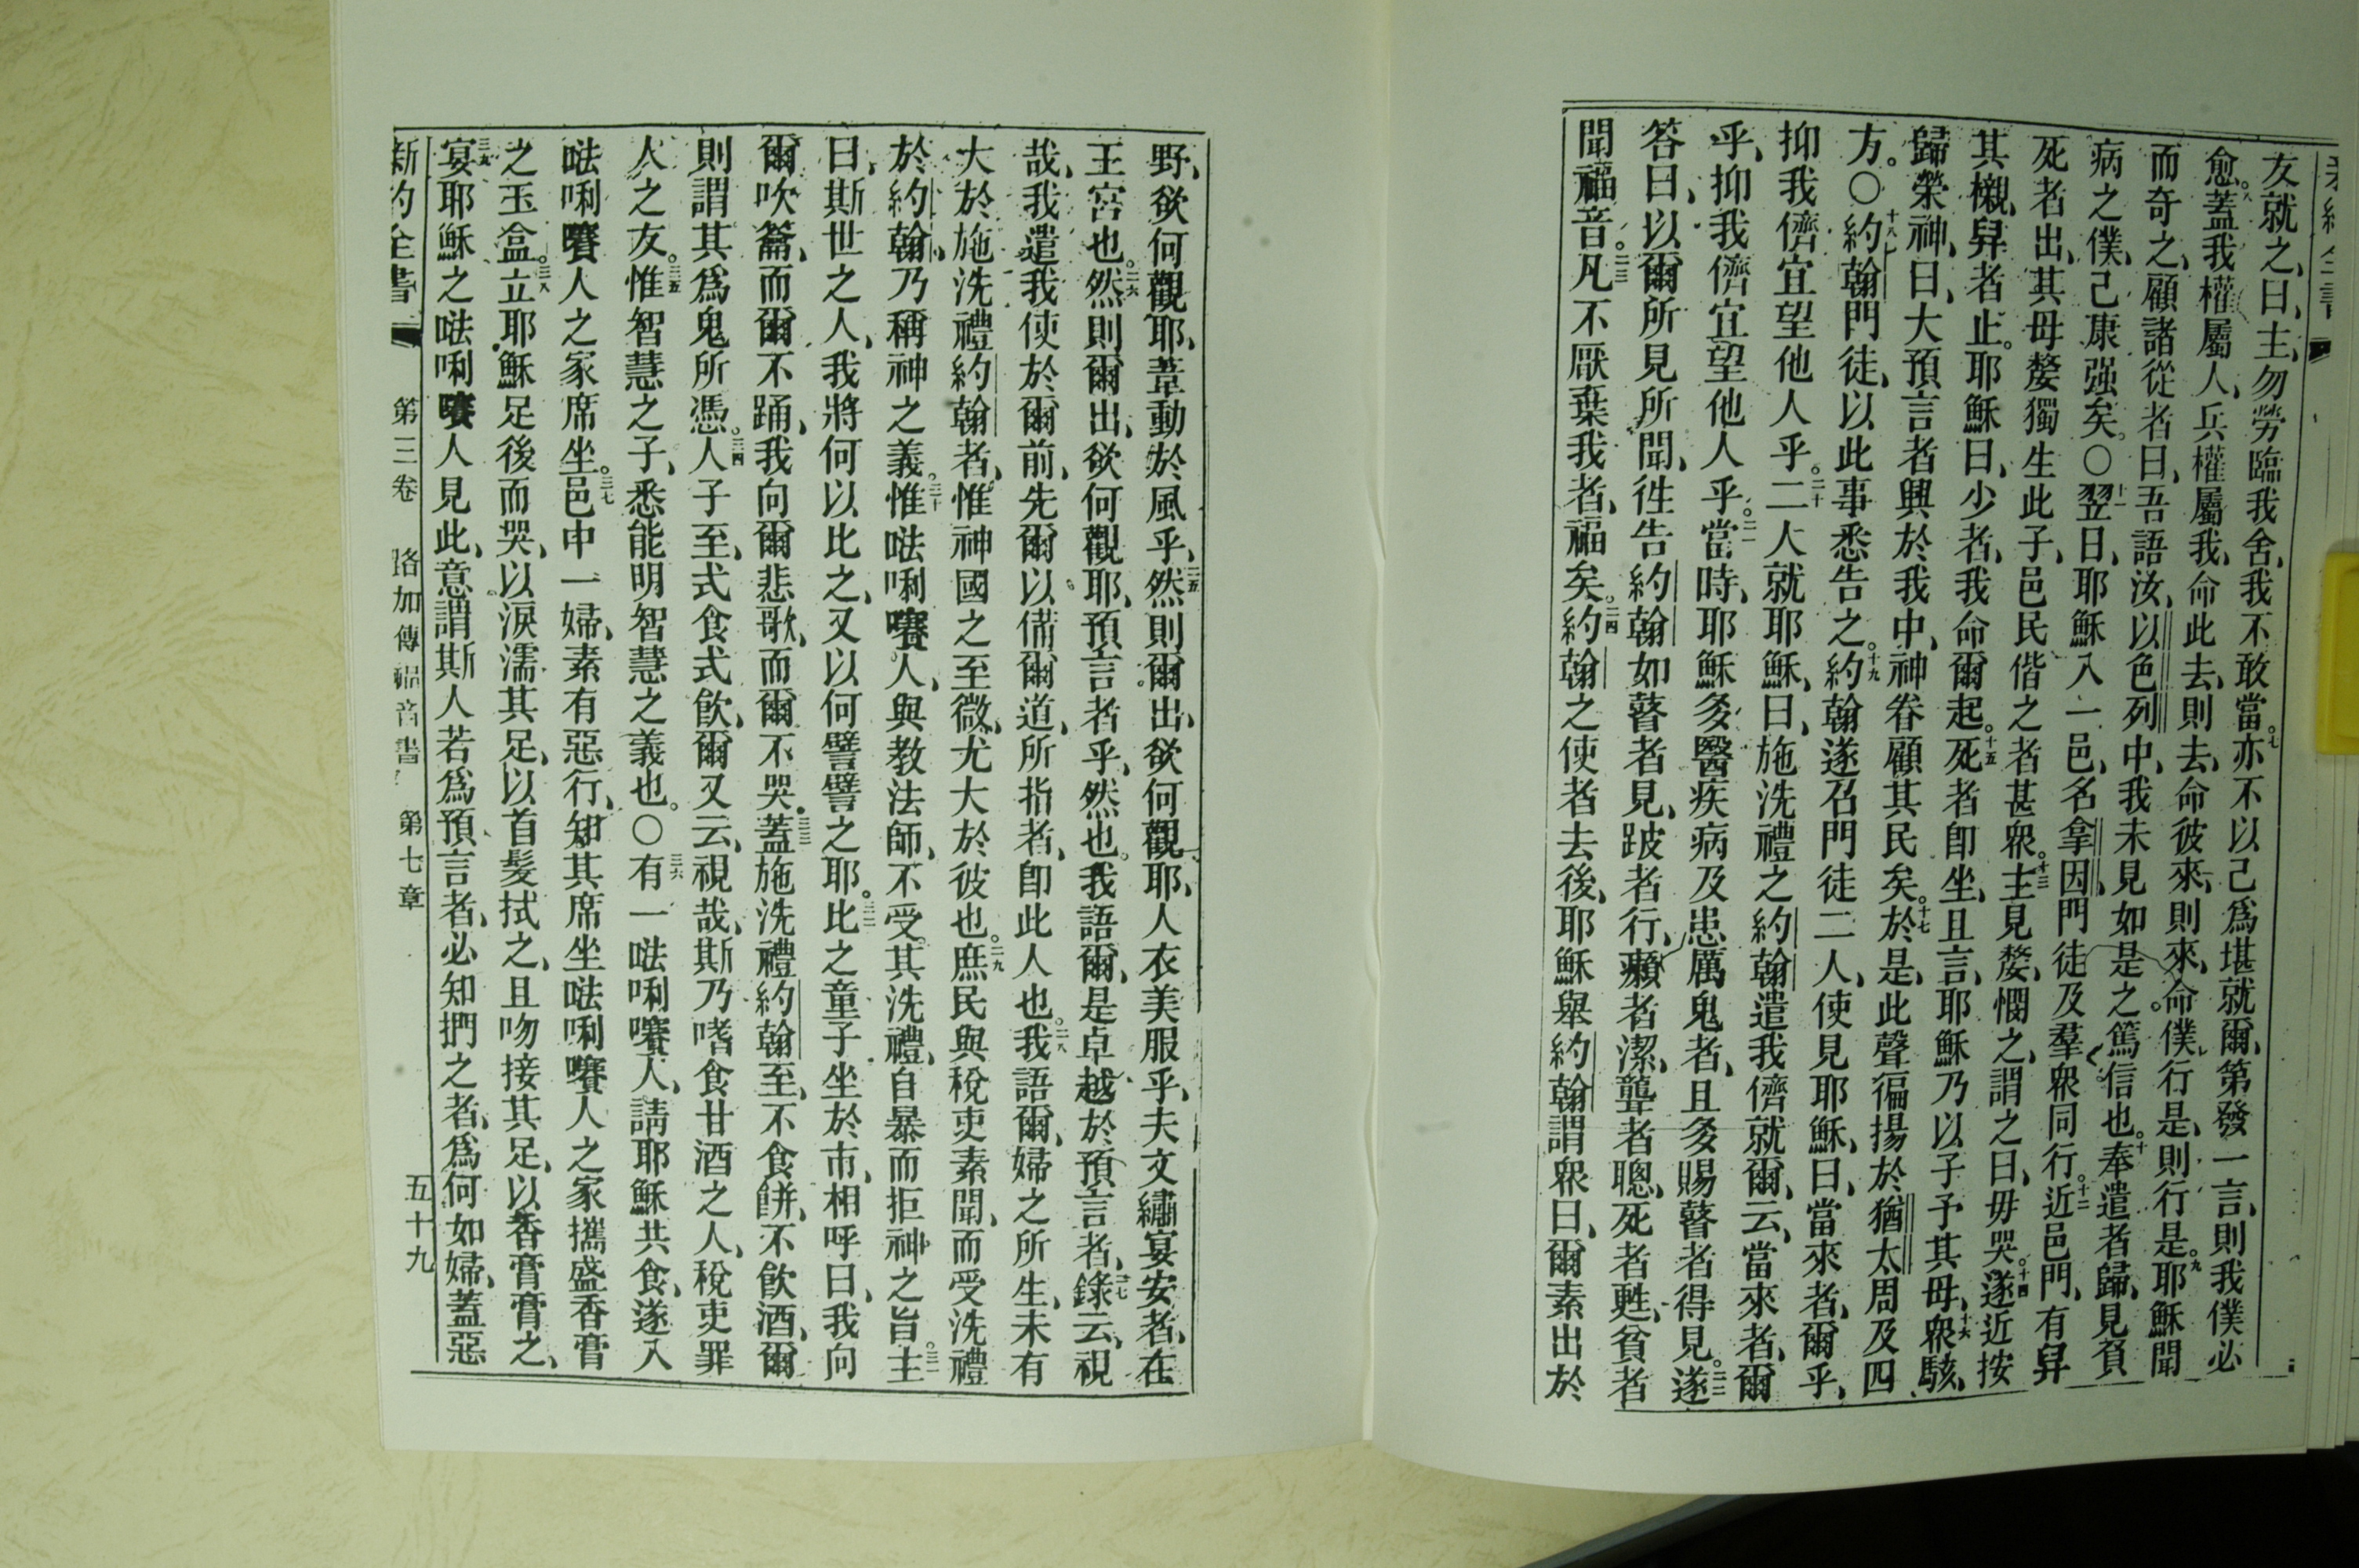 友就之、曰、主、勿勞臨我舍、我不敢當。七亦不以己爲堪就爾、第發一言、則我僕必
愈。八蓋我權屬人、兵權屬我、命此去、則去、命彼來、則來、命僕行是、則行是。九耶穌聞
而奇之、顧諸從者曰、吾語汝、以色列中、我未見如是之篤信也。十奉遣者歸、見負
病之僕、已康强矣。〇十一翌日、耶穌入一邑、名拿因、門徒及羣衆同行。十二近邑門、有舁
死者出、其母嫠獨生此子、邑民偕之者甚衆。十三主見嫠、憫之、謂之曰、毋哭。十四遂近按
其櫬、舁者止。耶穌曰、少者、我命爾起。十五死者卽坐、且言、耶穌乃以子予其母、十六衆駭、
歸榮神、曰、大預言者興於我中、神眷顧其民矣。十七於是、此聲徧揚於猶太周及四
方。〇十八約翰門徒、以此事悉告之。十九約翰遂召門徒二人、使見耶穌、曰、當來者、爾乎、
抑我儕宜望他人乎。二十二人就耶穌、曰、施洗禮之約翰遣我儕就爾、云、當來者、爾
乎、抑我儕宜望他人乎。二一當時、耶穌多醫疾病及患厲鬼者、且多賜瞽者得見。二二遂
答曰、以爾所見所聞、徃告約翰、如瞽者見、跛者行、癩者潔、聾者聰、死者甦、貧者
聞福音。二三凡不厭棄我者、福矣。二四約翰之使者去後、耶穌舉約翰謂衆曰、爾素出於
野、欲何觀耶、葦動於風乎、二五然則爾出、欲何觀耶、人衣美服乎、夫文繡宴安者、在
王宮也。二六然則爾出、欲何觀耶、預言者乎、然也。我語爾、是卓越於預言者、二七錄云、視
哉、我遣我使於爾前、先爾以備爾道、所指者、卽此人也。二八我語爾、婦之所生、未有
大於施洗禮約翰者、惟神國之至微、尤大於彼也。二九庶民與稅吏素聞、而受洗禮
於約翰、乃稱神之義。三十惟㗁唎㘔人、與教法師、不受其洗禮、自暴而拒神之旨。三一主
曰、斯世之人、我將何以比之、又以何譬譬之耶。三二比之童子坐於市、相呼曰、我向
爾吹籥、而爾不踊、我向爾悲歌、而爾不哭。三三蓋施洗禮約翰至、不食餅、不飮酒、爾
則謂其爲鬼所憑。三四人子至、式食式飮、爾又云、視哉、斯乃嗜食甘酒之人、稅吏罪
人之友。三五惟智慧之子、悉能明智慧之義也。〇三六有一㗁唎㘔人、請耶穌共食、遂入
㗁唎㘔人之家席坐。三七邑中一婦、素有惡行、知其席坐㗁唎㘔人之家、攜盛香膏
之玉盒。三八立耶穌足後而哭、以淚濡其足、以首髮拭之、且吻接其足、以香膏膏之、
三九宴耶穌之㗁唎㘔人見此、意謂斯人若爲預言者、必知捫之者、爲何如婦、蓋惡
新約全書 第三卷 路加傳福音書 第七章 五十九